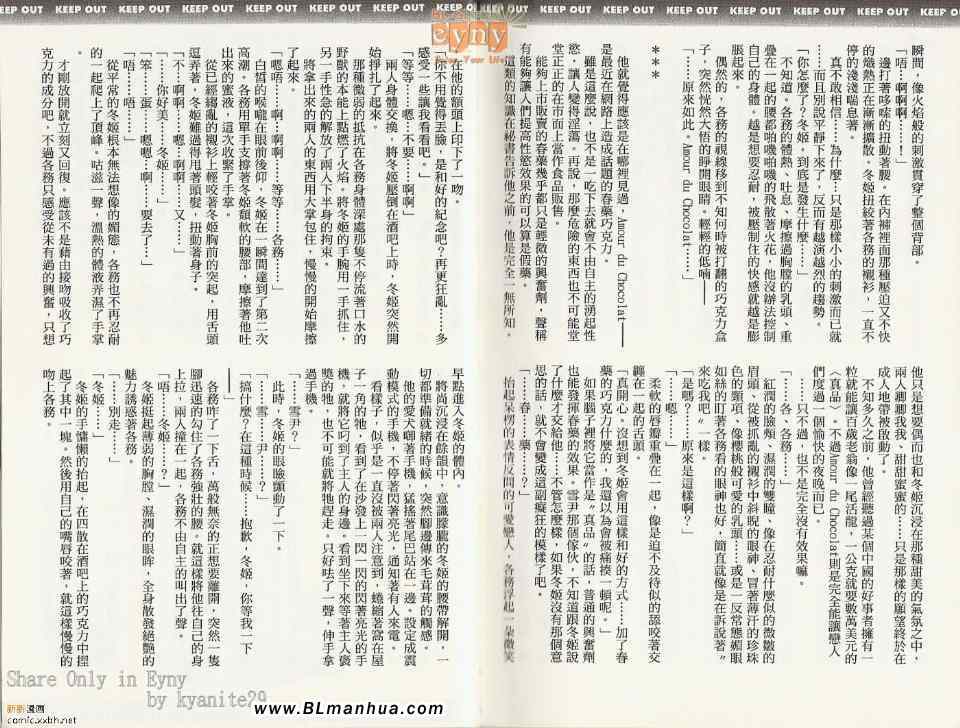 KEEP OUT KEEP OUT KEEP OUT KEEP OUT KEEP OUT KEEP OUT KEEP OUT KEEP OUT KEEP OUT KEEP OUT KEEP OUT
eyny
瞬間，像火焰般的刺激貫穿了整個背部。
「唔！啊啊……！」
邊打著哆嗦的扭動著腰。在內褲裡面那種壓迫又不快
的熾熱正在漸漸擴散。冬姬扭絞著各務的襯衫，一直不
停的淺淺喘息著。
真不敢相信……為什麼…只是那樣小小的刺激而已就
……而且別說平靜下來了，反而有越演越烈的趨勢。
「你怎麼了？冬姬。到底是發生什麼……」
不知道。各務的體熱、吐息、摩擦過胸膛的乳頭、重
疊在一起的腰都啪嘰啪嘰的飛散著火花，他沒辦法控制
自己的身體。越是想要忍耐，被壓制住的快感就越是膨
脹起來。
突然，各務的視線移到不知何時被打翻的巧克力盒
子，偶然恍然大悟的睜開眼睛。輕輕的低喃——
「……原來如此。Amour du Chocolat……」
***
他就覺得應該是在哪裡見過，Amour du Chocolat——
是最近在網路上造成話題的春藥巧克力。
雖是這麼說，也不是一吃下去就會不由自主的湧起性
慾，讓人變得淫蕩。再說，那麼危險的東西也不可能堂
堂正正的在市面上當作食品販售。
能夠上市販賣的春藥幾乎都只是輕微的興奮劑，聲稱
有能夠讓人們提高性慾效果的可以算是假藥。
這類的知識在秘書告訴他之前，他是完全一無所知。
他只是想要偶而也和冬姬沉浸在那種甜美的氣氛之中，
兩人卿卿我我、甜甜蜜蜜的……只是那樣的願望終於在
成人地帶被啟動了。
不知多久之前，他曾經聽過某個中國的好事者擁有一
粒就能讓百歲老翁像一尾活龍，一公克就要數萬美元的
〈真品〉。不過Amour du Chocolat則是完全能讓戀人
們度過一個愉快的夜晚而已。
……只不過，也不是完全沒有效果嘛。
「……各、各務……」
紅潤的臉頰、濕潤的雙瞳、像在忍耐什麼似的皺皺的
眉頭、從被抓亂的襯衫中睨睨的眼神、冒著薄汗的珍珠
色的頸項、像櫻桃般可愛的乳頭……或是一反常態媚眼
如絲的盯著各務看的眼神也好，簡直就像是在訴說著“
來吃我吧〞一樣。
「是嗎？……原來是這樣啊？」
「……嗯……」
柔軟的唇瓣重疊在一起，像是迫不及待似的舔咬著交
纏在一起的舌頭。
「真開心。沒想到冬姬會用這樣和好的方式……加了春
藥的巧克力什麼的，我還以為會被痛揍一頓呢。」
如果腦子裡將它當作是“真品〞的話，普通的興奮劑
也能發揮春藥的效果。雪尹那個傢伙，不知道跟冬姬說
了什麼才交給他……不管怎麼樣，如果冬姬沒有那個意
思的話，就不會變成這副癡狂的模樣了吧。
「……春……藥……？」
抬起呆愣的表情反問的可愛戀人，各務浮起一朵微笑
在他的額頭上印下了一吻。
「你不用覺得丟臉。是和好的紀念吧？再更狂亂……多
感受一些讓我看看吧。」
「等等……嗯…不要……啊」
兩人身體交換，將冬姬壓倒在酒吧上時，冬姬突然開
始掙扎了起來。
那種微弱的抵抗在各務身體深處那隻不停流著口水的
野獸的本能上點燃了火焰。將冬姬的手腕用一手抓住，
另一手性急的解放了兩人下半身的拘束。
將拿出來的兩人的東西用大掌包住。慢慢的開始摩擦
了起來。
「嗯唔……啊。啊啊……等……各務……」
白皙的喉嚨在眼前後仰，冬姬在一瞬間達到了第二次
高潮。各務用單手支撐著冬姬頹軟的腰部，摩擦著他吐
出來的蜜液，這次收緊了手掌。
從已經縐亂的襯衫上輕咬著冬姬胸前的突起，用舌頭
逗弄著，冬姬難過得甩著頭髮，扭動著身子。
「不…啊啊。啊啊……又……」
「……你好美……冬姬……」
「笨……蛋……嗯嗯…啊……要去了……」
「唔……！」
從平常的冬姬根本無法想像的媚態，各務也不再忍耐
的一起爬上了頂峰。咕滋一聲，溫熱的體液弄濕了手掌
。
才剛放開就立刻又回復。應該不是藉由接吻吸收了巧
克力的成分吧，不過各務只感受從未有過的興奮，只想
早點進入冬姬的體內。
將尚沉浸在餘韻中，意識朦朧的冬姬的腰帶解開，一
切都準備就緒的時候，突然腳邊傳來毛茸茸的觸感。
他的愛犬啣著手機，猛搖著尾巴站在一邊。設定成震
動模式的手機，不停著閃著亮光，通知著有人來電。
看樣子，似乎是一直沒被兩人注意到，蜷縮著窩在屋
子一角的牠，看到了在沙發上一閃一閃的閃著亮光的手
機，就將它叼到了主人的身邊。看到坐下來等著主人褒
獎的牠，也不可能就將牠趕走。只好咕了一聲，伸手拿
過手機。
「……雪尹？」
此時，冬姬的眼瞼顫動了一下。
「搞什麼？在這種時候……抱歉，冬姬，你等我一下
——」
各務咋了一下舌，萬般無奈的正想要離開，突然一隻
腳迅速的勾住了各務強壯的腰。就這樣將他往自己的身
上拉，兩人撞在一起，各務不由自主的叫出了聲。
「唔……冬姬……？」
冬姬挺起薄弱的胸膛、濕潤的眼眸，全身散發絕艷的
魅力誘惑著各務。
「……別走……」
「冬姬」
冬姬的手慵懶的抬起，在四散在酒吧上的巧克力中捏
起了其中一塊。然後用自己的嘴唇咬著，就這樣慢慢的
吻上各務。
Share Only in Eyny
by kyanite29
新新漫画
comic.xxbh.net
www.BLmanhua.com